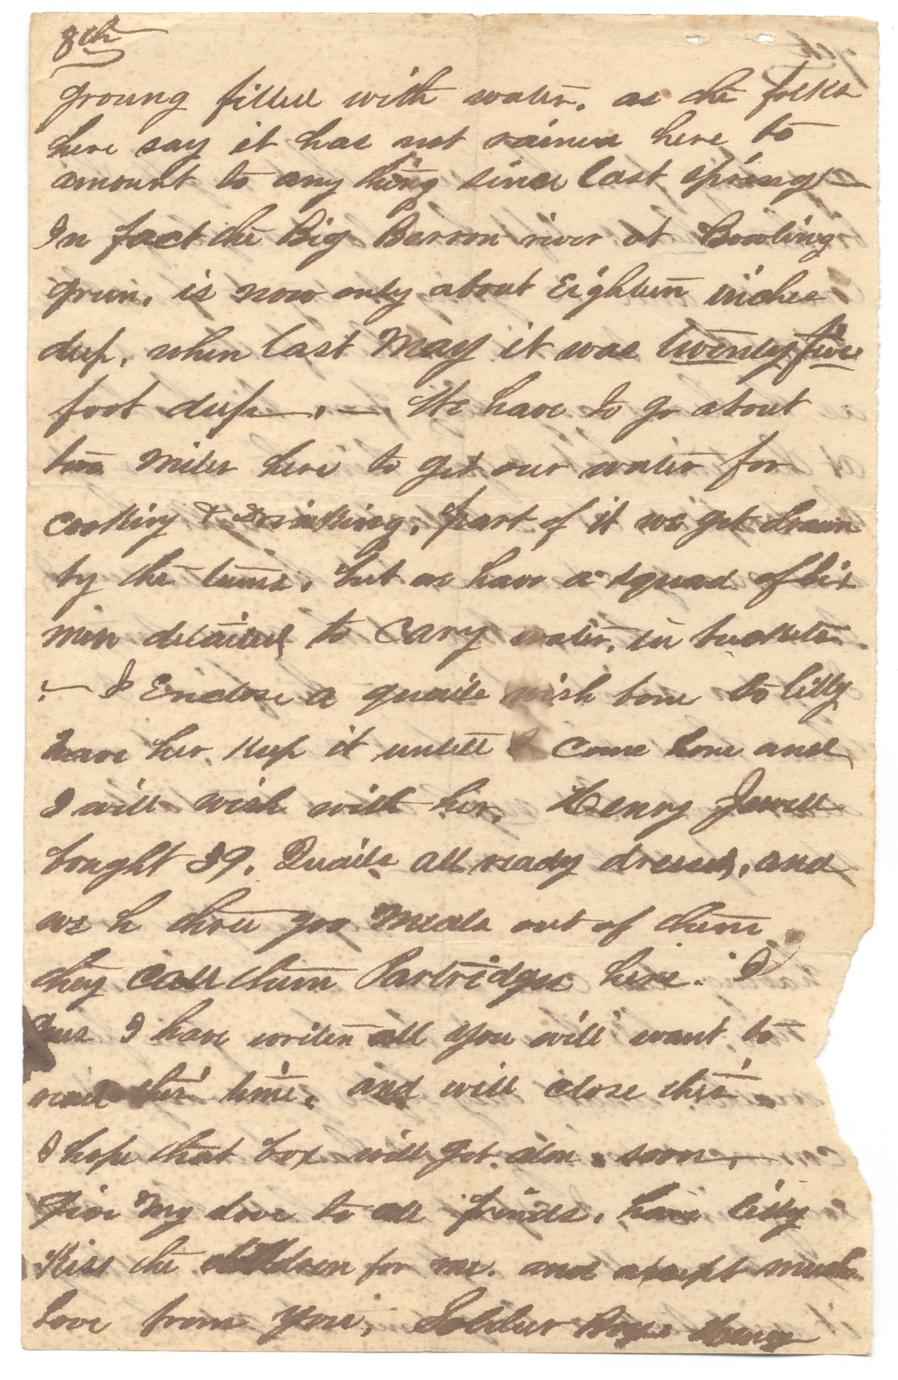 8th
groung filled with water. as the folks
here say it has not rained here to
amount to any thing since last spring —
In fact the Big Barron river at Bowling
green, is now only about Eighteen inches
deep, when last May it was twenty five
foot deep —. — We have to go about
two miles here to get our water for
cooking & drinking, part of it we get drawn
by the teams, but we have a squad of six
men detailed to Carry water, in buckets.
— I Enclose a quaile wish bone to Lilly
have her keep it untill I come home and
I will wish with her, Henry Jewell
bought 39, Quails all ready dressed, and
we h three goo Meals out of them
they call them Partridges here. I
I have writen all you will want to
read this time, and will close this
I hope that box will get alon soon —
Give My love to all friends, have Lilly
Kiss the children for me. and accept much
Love from your, Soldier Boy Henry